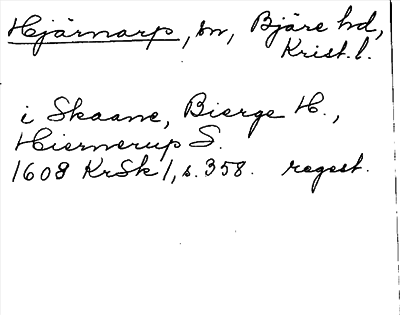 Hjärnarp, sn, Bjäre hd,
Krist. l.
i Skaane, Bierge H.,
Hiernerup S.
1608 KrSk 1, s. 358. regest.